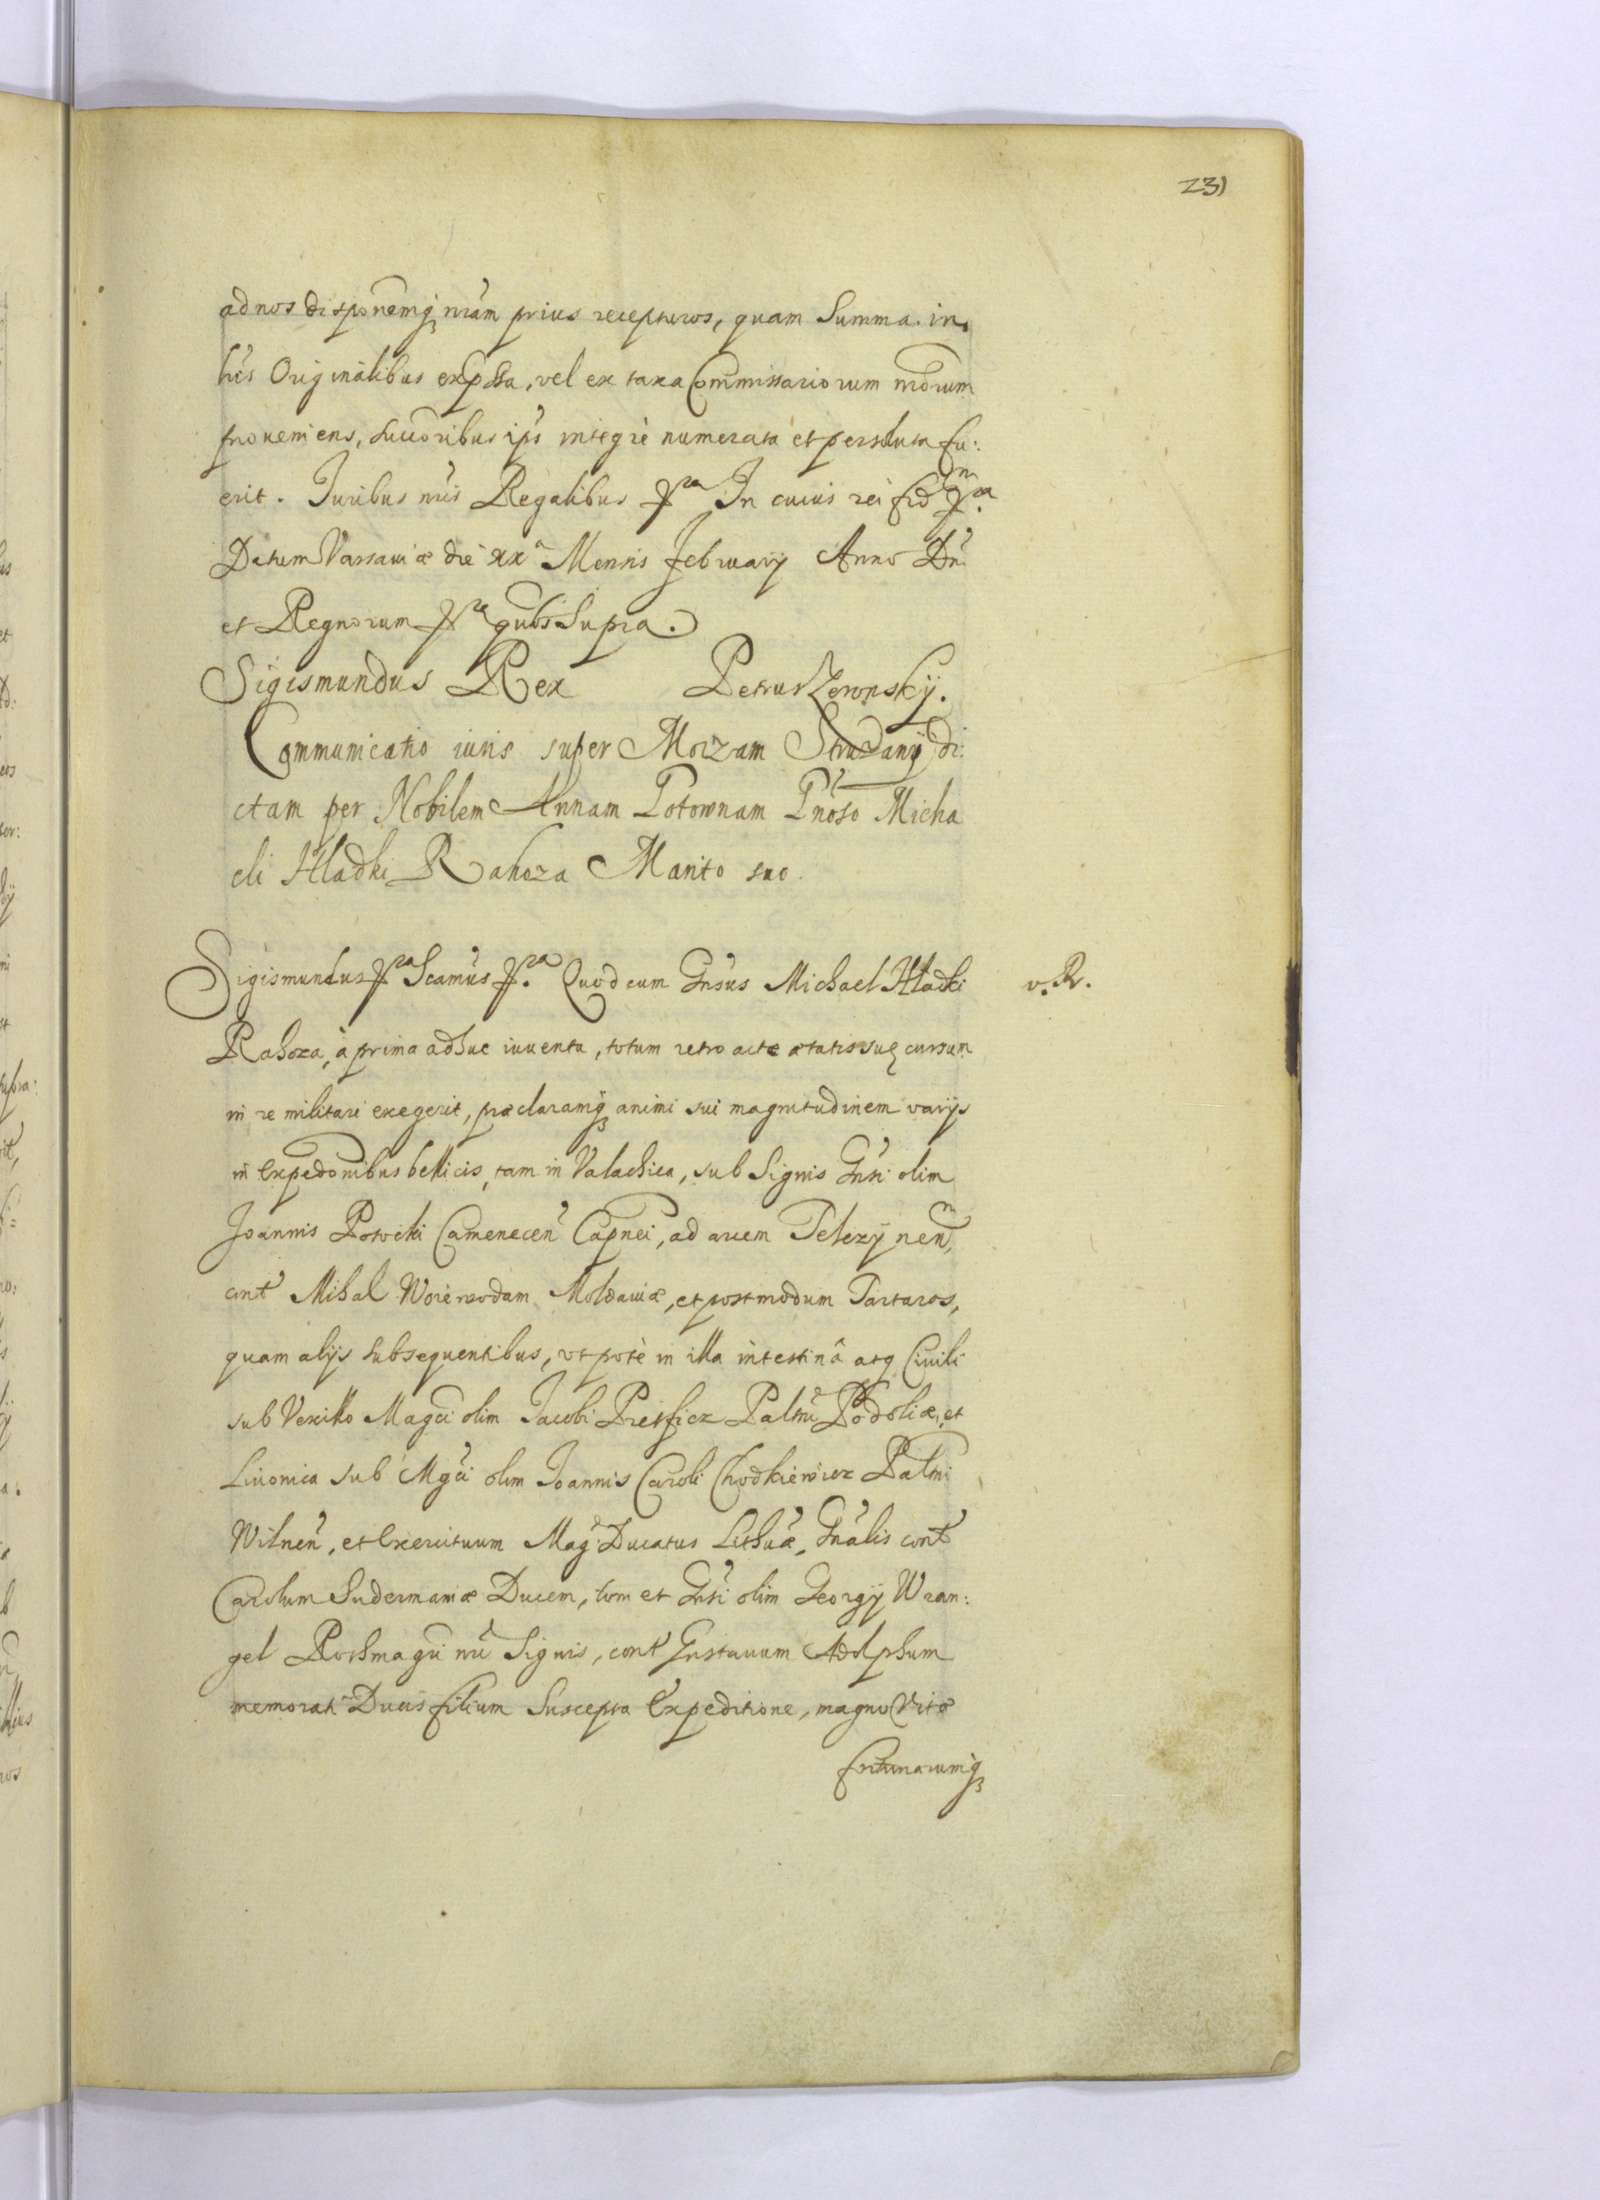 231
ad nos disponemq nram prius recepturos, quam Summa in
lris Originalibus expssa, vel ex taxa Commissariorum nrorum
proveniens, succoribus ips integrè numerata et persoluta fu:
erit. Juribus nris Regalibus In cuius rei fid
Datum Varsaviæ die xxa Mensis February Anno Dn
et Regnorum qubs Supra.
Sigismundus Rex Petrus Zeronsky.
Communicatio iuris super Morzam Strudany di:
ctam per Nobilem Annam Potownam Gnoso Micha
eli Hladki Rahoza Marito suo.
Sigismundus Scamus Quod cum Gnsus Michael Hladki
v. R.
Rahoza, à prima adhuc iuventa, totum retro actæ ætatis suę cursum
in re militari exegerit, præclaramq animi sui magnitudinem varijs
in expedonibus bellicis, tam in Valachica, sub Signis Gnsi olim
Joannis Potocki Camenecen Capnei, ad arcem Telezynen
cont Mihal Woiewodam Moldaviæ, et postmodum Tartaros,
quam alijs subsequentibus, ut pote in illa intestinâ atq Civili
sub Vexillo Magci olim Jacobi Pretficz Paltni Podoliæ, et
Livonica sub Mgci olim Joannis Caroli Chodkiewicz Palni
Wilnen, et Exercituum Mag Ducatus Lithuæ, Gnalis cont
Carolum Sudermaniæ Ducem, tum et Gnsi olim Georgy Wran:
gel Rothmagri nri Signis, cont Gustavum Adolphum
memorati Ducis filium Suscepta Expeditione, magno Vitæ
fortunarumq